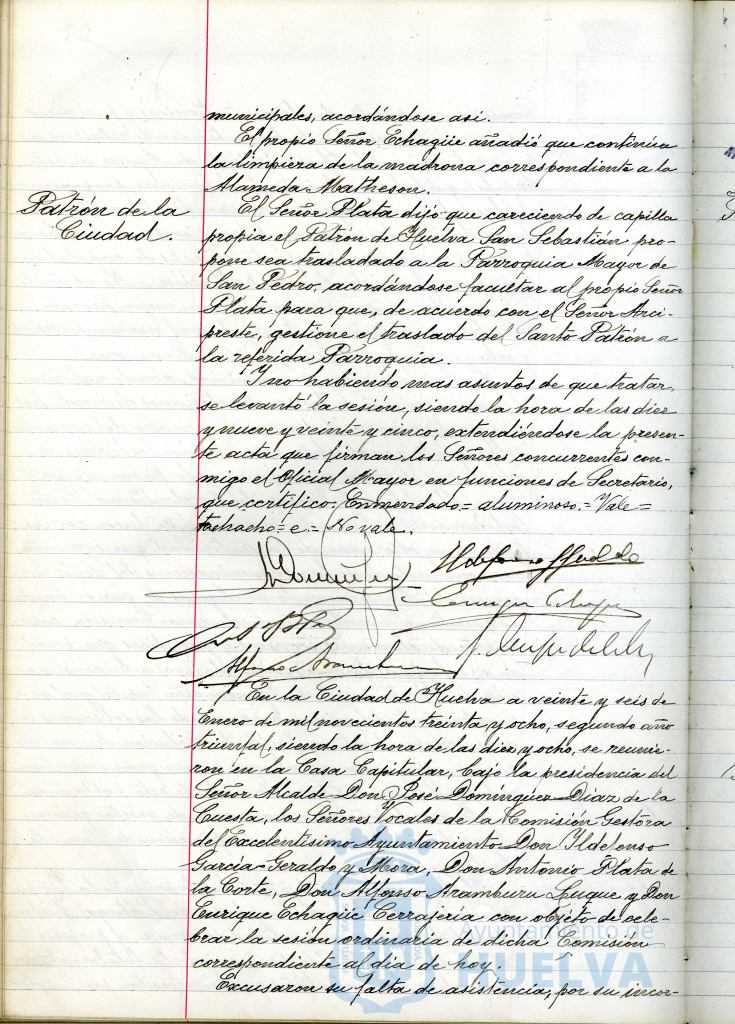 municipales, acordándose asi.
El propio Señor Echagüe añadió que continúa
la limpieza de la madrona correspondiente a la
Alameda Matheson.
Patrón de la
Ciudad.
El Señor Plata dijo que careciendo de capilla
propia el Patrón de Huelva San Sebastián pro-
pone sea trasladado a la Parroquia Mayor de
San Pedro, acordándose facultar al propio Señor
Plata para que, de acuerdo con el Señor Arci-
preste, gestione el traslado del Santo Patrón a
la referida Parroquia.
Y no habiendo mas asuntos de que tratar,
se levantó la sesión, siendo la hora de las diez
y nueve y veinte y cinco, extendiéndose la presen-
te acta que firman los Señores concurrentes con-
migo el Oficial Mayor en funciones de Secretario,
que certifico= Enmendado= aluminoso= Vale=
tachado= e= No vale.
En la Ciudad de Huelva a veinte y seis de
Enero de mil novecientos treinta y ocho, segundo año
triunfal, siendo la hora de las diez y ocho, se reunie-
ron en la Casa Capitular, bajo la presidencia del
Señor Alcalde Don José Domínguez Díaz de la
Cuesta, los Señores Vocales de la Comisión Gestora
del Excelentísimo Ayuntamiento Don Ildefonso
García-Geraldo y Mora, Don Antonio Plata de
la Corte, Don Alfonso Aramburu Luque y Don
Enrique Echagüe Cerrajería con objeto de cele-
brar la sesión ordinaria de dicha Comisión
correspondiente al día de hoy.
Excusaron su falta de asistencia, por su incor-
Ayuntamiento de
HUELVA